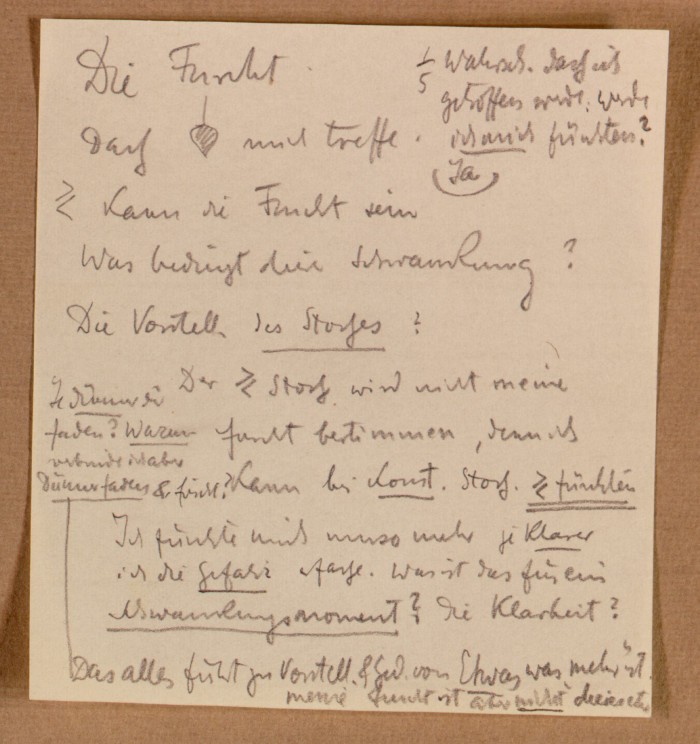 Die Furcht.
Dass mich treffe.
≷ Kann die Furcht sein
Was bedingt diese Schwankung?
Die Vorstell. des Stosses?
Der ≷ Stoss wird nicht meine
Furcht bestimmen, denn ich
Kann bei Const. Stoss. ≷ fürchten
Ich fürchte mich umso mehr je klarer
ich die Gefahr erfasse. Was ist das für ein
Schwankungsmoment? Die Klarheit?
Das alles führt zu Vorstell. & Ged. von Etwas was mehr ist.
meine Furcht ist aber nicht
1/5 Wahrsch. dass ich
getroffen werde. werde
ich mich fürchten?
Ja
Je dünner der
Faden? Warum
verbinde ich aber
Dünner Faden &